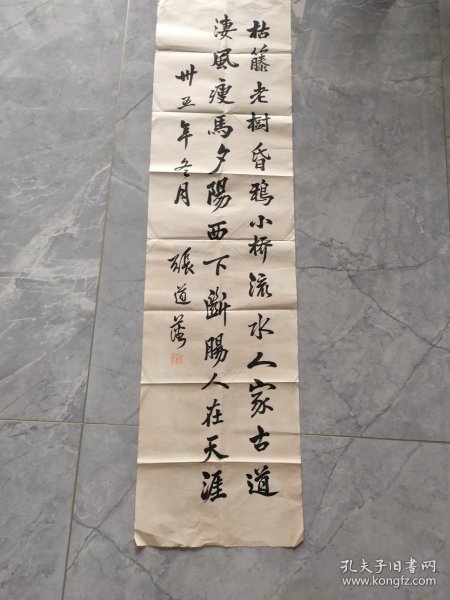 枯籐老樹昏鴉小桥流水人家古道
淒風瘦馬夕陽西下斷腸人在天涯
卅五年冬月
張道藩
孔夫子旧书网
www.kongfz.com